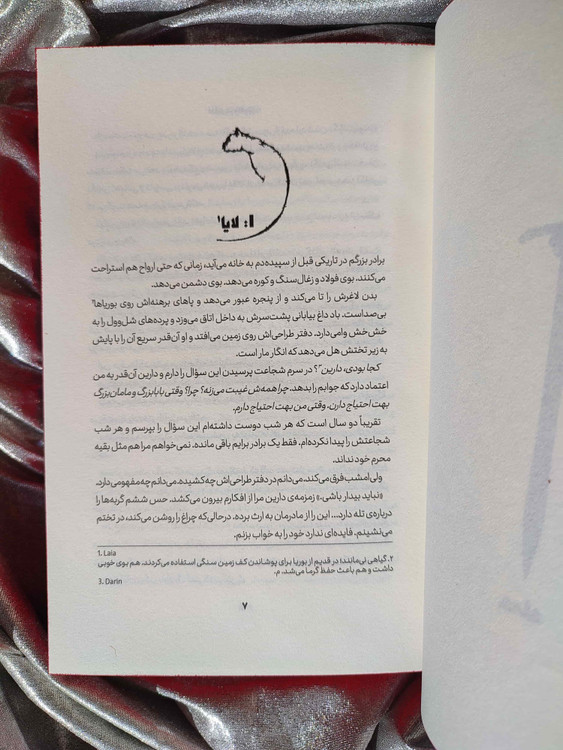 ۱: لایا¹
برادر بزرگم در تاریکی قبل از سپیده‌دم به خانه می‌آید، زمانی که حتی ارواح هم استراحت
می‌کنند. بوی فولاد و زغال‌سنگ و کوره می‌دهد. بوی دشمن می‌دهد.
بدن لاغرش را تا می‌کند و از پنجره عبور می‌دهد و پاهای برهنه‌اش روی بوریاها²
بی‌صداست. باد داغ بیابانی پشت‌سرش به داخل اتاق می‌وزد و پرده‌های شل‌وول را به
خش‌خش وامی‌دارد. دفتر طراحی‌اش روی زمین می‌افتد و او آن‌قدر سریع آن را با پایش
به زیر تختش هل می‌دهد که انگار مار است.
کجا بودی، دارین³؟ در سرم شجاعت پرسیدن این سؤال را دارم و دارین آن‌قدر به من
اعتماد دارد که جوابم را بدهد. چرا همه‌ش غیبت می‌زنه؟ چرا؟ وقتی بابابزرگ و مامان‌بزرگ
بهت احتیاج دارن. وقتی من بهت احتیاج دارم.
تقریباً دو سال است که هر شب دوست داشته‌ام این سؤال را بپرسم و هر شب
شجاعتش را پیدا نکرده‌ام. فقط یک برادر برایم باقی مانده. نمی‌خواهم مرا هم مثل بقیه
محرم خود نداند.
ولی امشب فرق می‌کند. می‌دانم در دفتر طراحی‌اش چه کشیده. می‌دانم چه مفهومی دارد.
«نباید بیدار باشی.» زمزمه‌ی دارین مرا از افکارم بیرون می‌کشد. حس ششم گربه‌ها را
درباره‌ی تله دارد... این را از مادرمان به ارث برده. درحالی‌که چراغ را روشن می‌کند، در تختم
می‌نشینم. فایده‌ای ندارد خود را به خواب بزنم.
1. Laia
۲. گیاهی نی‌مانند؛ در قدیم از بوریا برای پوشاندن کف زمین سنگی استفاده می‌کردند. هم بوی خوبی
داشت و هم باعث حفظ گرما می‌شد. م.
3. Darin
۷